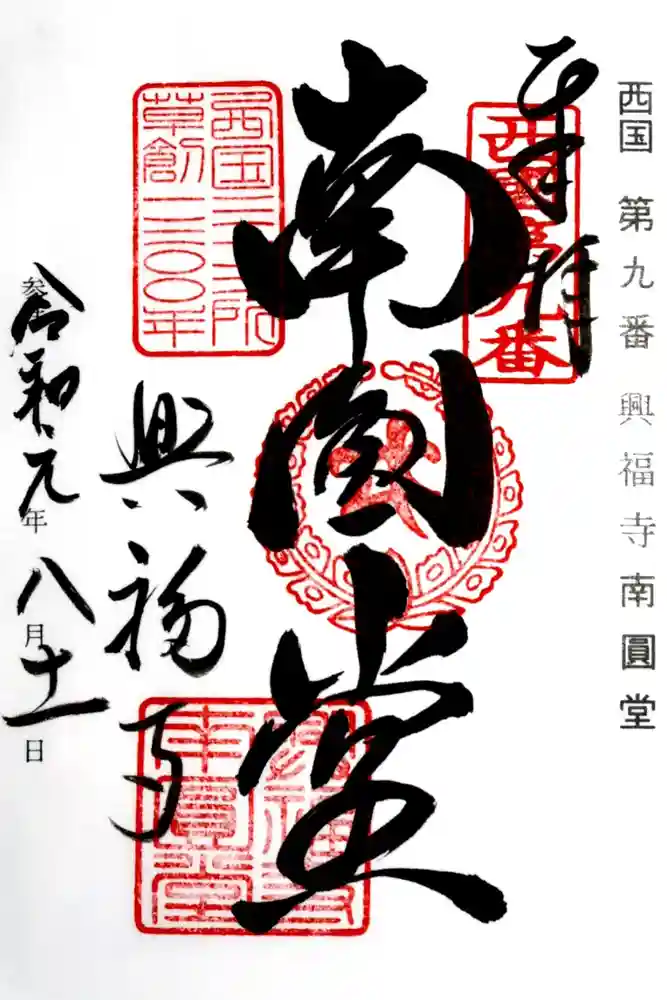 西国 第九番 興福寺南圓堂
奉拝
西國第九番
南圓堂
西国三十三所
草創一三〇〇年
興福寺
興福寺
南圓堂
参拝
令和元年八月十一日